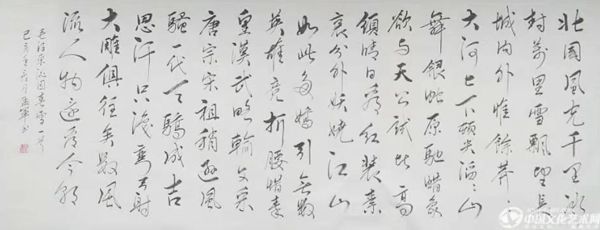 北国风光千里冰
封万里雪飘望长
城内外惟余莽
大河上下顿失滔滔山
舞银蛇原驰蜡象
欲与天公试比高
须晴日看红装素
裹分外妖娆江山
如此多娇引无数
英雄竞折腰惜秦
皇汉武略输文采
唐宗宋祖稍逊风
骚一代天骄成吉
思汗只识弯弓射
大雕俱往矣数风
流人物还看今朝
毛泽东沁园春雪一首
中国文化艺术网